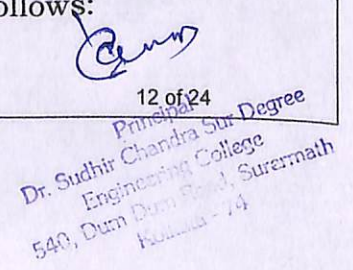 ollows:
12 of 24
Principal
Dr. Sudhir Chandra Sur Degree
Engineering College
540, Dum Dum Road, Surermath
Kolkata - 74